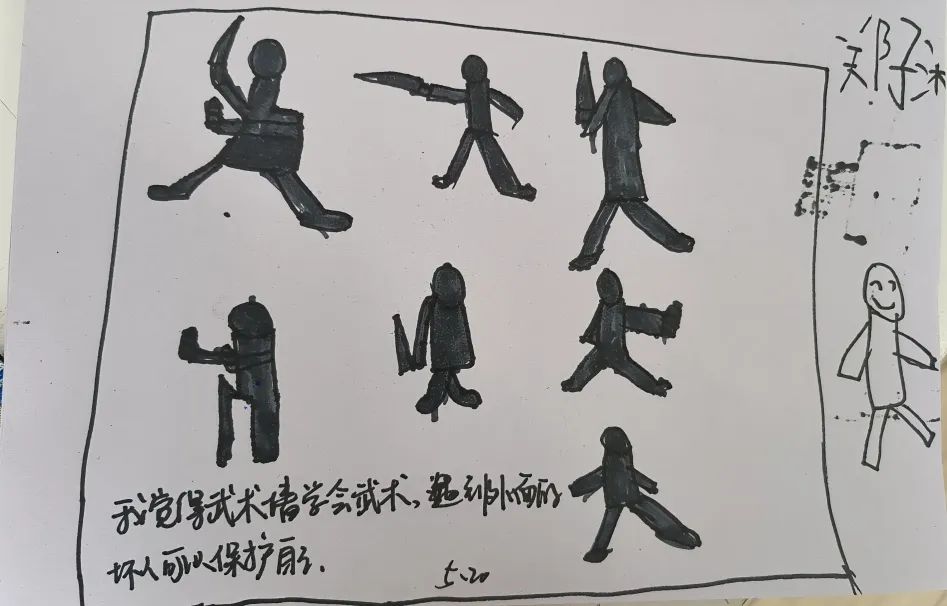 郑子沐
我觉得武术墙学会武术,遇到外面的
坏人可以保护自己.
5.20